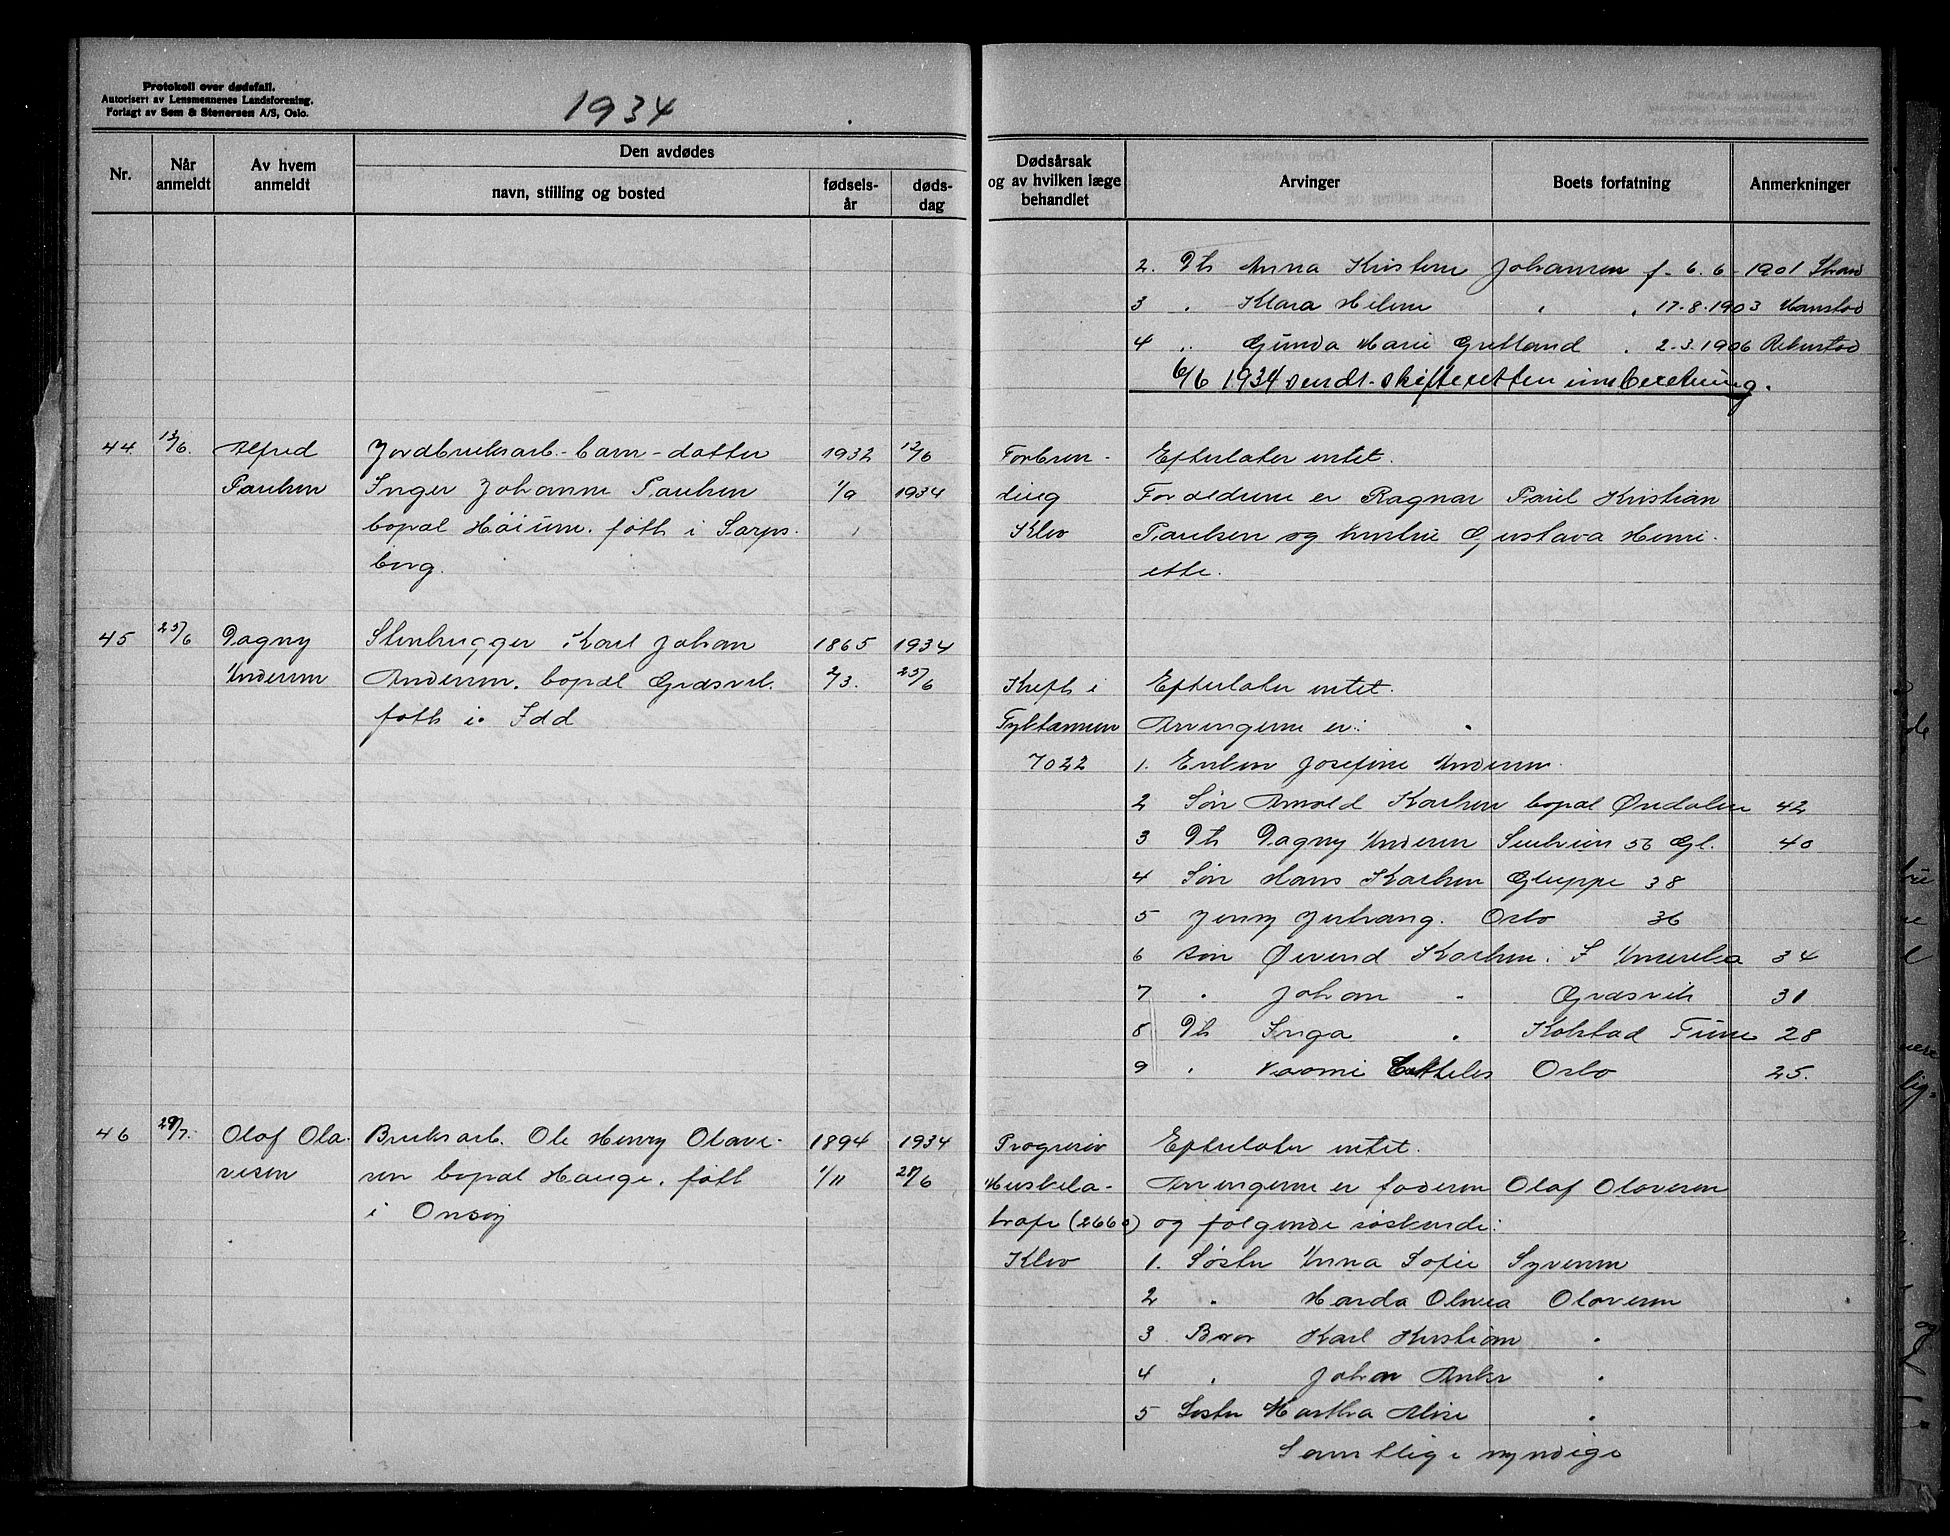 Protokoll over dødsfall.
Autorisert av Lensmennenes Landsforening.
Forlagt av Søm & Stenersen A/S, Oslo.
1934
Nr.
Når anmeldt
Av hvem anmeldt
Den avdødes
navn, stilling og bosted
fødsels-år
døds-dag
Dødsårsak
og av hvilken læge
behandlet
Arvinger
Boets forfatning
Anmerkninger
2. Dtr Anna Kristine Johansen f. 6.6 1901
3 " Klara Helene " " 17.8.1903
4 " Gunda Marie Gretland " 2.3.1906
6/6 1934 sendt skifteretten innberetning.
44. 13/6. Alfred Jordbruksarb. barn - datter 1932 12/6 Forbren- Efterlater intet.
Paulsen Inger Johanne Paulsen 1/9 1934 ding Foreldrene er Ragnar Paul Kristian
bopæl Høium. født i Sarps- Klev Paulsen og hustru Gustava Henri-
borg. ette.
45 25/6 Dagny Stenhugger Karl Johan 1865 1934
Andersen Andersen. bopæl Græsvik. 2/3. 25/6 Kreft i Efterlater intet.
født i Idd Tyktarmen Arvingerne er:
7022 1. Enken Josefine Andersen.
2 Søn Arnold Karlsen bopæl Ørdalen 42
3 Dtr Dagny Andersen 56 Gl. 40
4 Søn Hans Karlsen Gluppe 38
5 Jenny Oslo 36
6 søn Øivind Karlsen. I Amerika 34
7 " Johan " Græsvik 31
8 Dtr Inga " Kolstad Tune 28
9 " Naomi Oslo 25.
46 28/7. Olaf Ola- Bruksarb. Ole Henry Olave- 1894 1934 Progresiv Efterlater intet.
vesen sen bopæl Hauge. født 1/11 28/6 Muskela- Arvingerne er faderen Olaf Olavesen
i Onsøy trofi (2660) og følgende søskende:
Klev 1. Søster Anna Sofie Syversen
2 " Harda Olavia Olavesen
3 Bror Karl Kristian "
4 " Johan Anker "
5 Søster Martha Alise "
Samtlige myndige